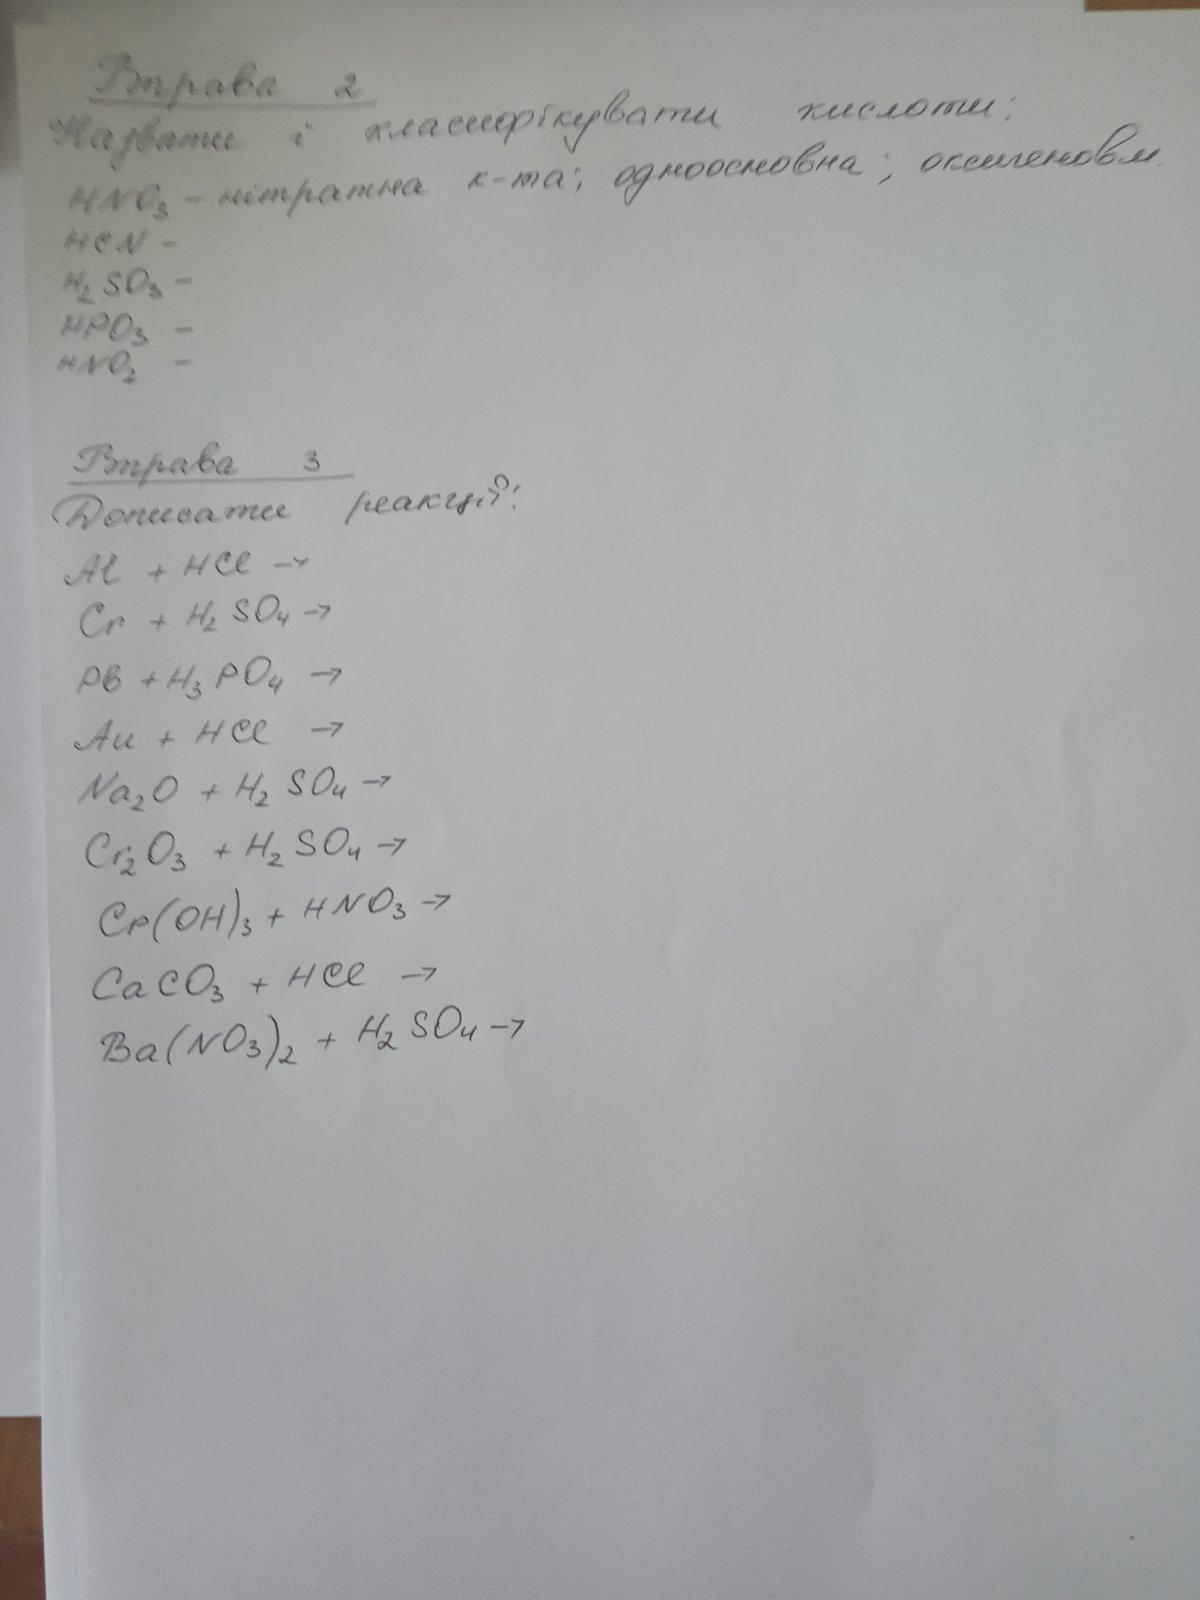 Вправа 2
Назвати і класифікувати кислоти:
HNO₃ - нітратна к-та; одноосновна; оксигеновм.
HCN -
H₂SO₃ -
HPO₃ -
HNO₂ -
Вправа 3
Дописати реакції:
Al + HCl →
Cr + H₂SO₄ →
Pb + H₃PO₄ →
Au + HCl →
Na₂O + H₂SO₄ →
Cr₂O₃ + H₂SO₄ →
Cr(OH)₃ + HNO₃ →
CaCO₃ + HCl →
Ba(NO₃)₂ + H₂SO₄ →